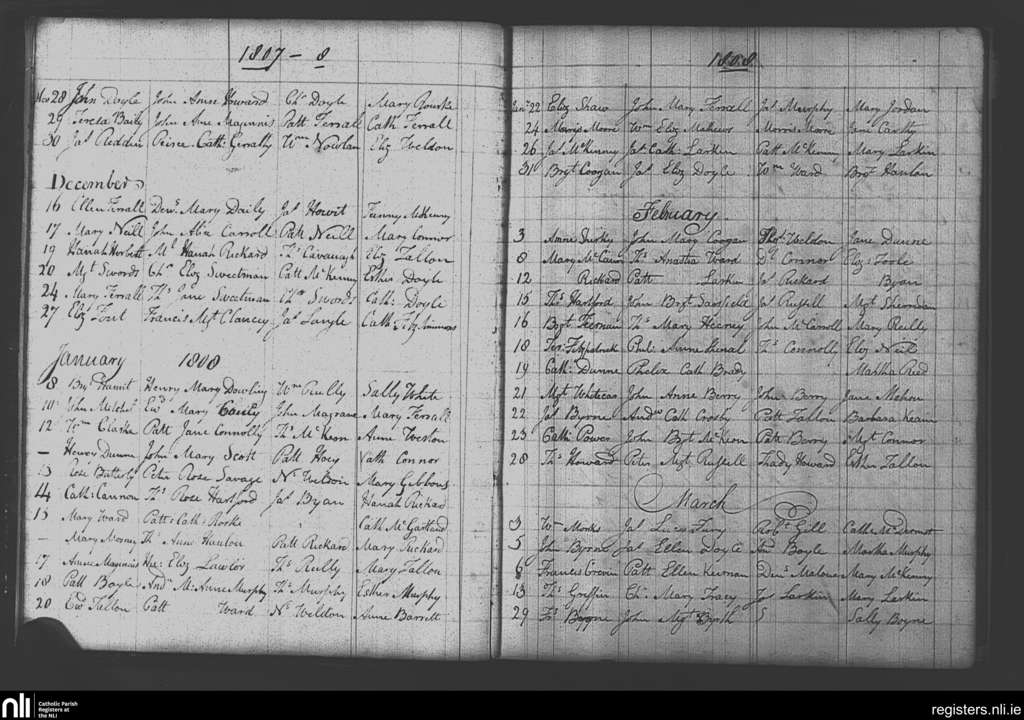 1807 - 8
Nov 28 John Doyle John Anne Howard Chs Doyle Mary Rourke
29 Teresa Baily John Anne Maginnis Patt Ferrall Cath Ferrall
30 Jas Reddin Peirce Cath: Gerraty Wm Nowlan Eliz Weldon
December
16 Ellen Ferrall Dens Mary Daily Jas Howit Fanny McKenny
17 Mary Neill John Alice Carroll Patk Neill Mary Connor
19 Hanah Ml Hanah Rickard Ths Cavanagh Eliz Tallon
20 Mgt Swords Chs Eliz Sweetman Patt McKenny Esther Doyle
24 Mary Ferrall Ths Jane Sweetman Ths Swords Cath: Doyle
27 Eliz Francis Mgt Clancey Jas Cath: Fitzsimmons
January 1808
8 Henry Mary Dowling Wm Reilly Sally White
10 John Edwd Mary John Magrane Mary Ferrall
12 Wm Clarke Patt Jane Connolly Ths McKeon Anne Weston
— Henry Dunne John Mary Scott Patt Hoey Cath Connor
13 Rose Butterly Peter Rose Savage Ns Weldon Mary Gibbons
14 Cath: Cannon Ths Rose Hartford Jas Byan Hannah Rickard
15 Mary Ward Patt: Cath: Rorke Cath
— Mary Ths Anne Hanlon Patt Rickard Mary Rickard
17 Anne Maginnis Eliz Lawlor Ths Reilly Mary Tallon
18 Patt Boyle Andw M: Anne Murphy Ths Murphy Esther Murphy
20 Edwd Tallon Patt Ward Ns Weldon Anne Barrett
1808
Jany 22 Eliz Shaw John Mary Ferrall Jas Murphy Mary Jordan
24 Morris Moore Wm Eliz Mathews Morris Moore Jane Carthy
26 Jas McKenny Jas Cath: Larkin Patt McKenny Mary Larkin
31 Brgt Coogan Jas Eliz Doyle Wm Ward Brgt Hanlon
February
3 Anne John Mary Coogan Thos Weldon Jane Dunne
8 Mary McCann Ths Anastha Ward Ds Connor Eliz: Toole
12 Rickard Patt Larkin Jas Rickard Byan
15 Ths Hartford John Brgt Sarsfield Jas Russell Mgt Sheridan
16 Brgt Feernan Ths Mary Heeney John McCarroll Mary Reilly
18 Ter: Fitzpatrick Phil: Anne Ths Connolly Eliz Neil
19 Cath: Dunne Phelix Cath Brady Martha Reid
21 Mgt Whiteear John Anne Berry John Berry Jane Mahon
22 Jas Byrne Andw Cath Crosby Patt Fallon Barbara Kearn
23 Cath: Power John Brgt McKeon Patt Berry Mgt Connor
28 Ths Howard Peter Mgt Russell Thady Howard Esther Tallon
March
3 Wm Monks Jas Lucy Robt Gill Cath McDermot
5 John Byrne Jas Ellen Doyle And Boyle Martha Murphy
6 Francis Patt Ellen Kiernan Dens Malone Mary McKenny
13 Ths Griffin Chs Mary Tracy Jas Larkin Mary Larkin
29 Js Byrne John Mgt Sally Boyne
nli Catholic Parish
Registers at
the NLI
registers.nli.ie